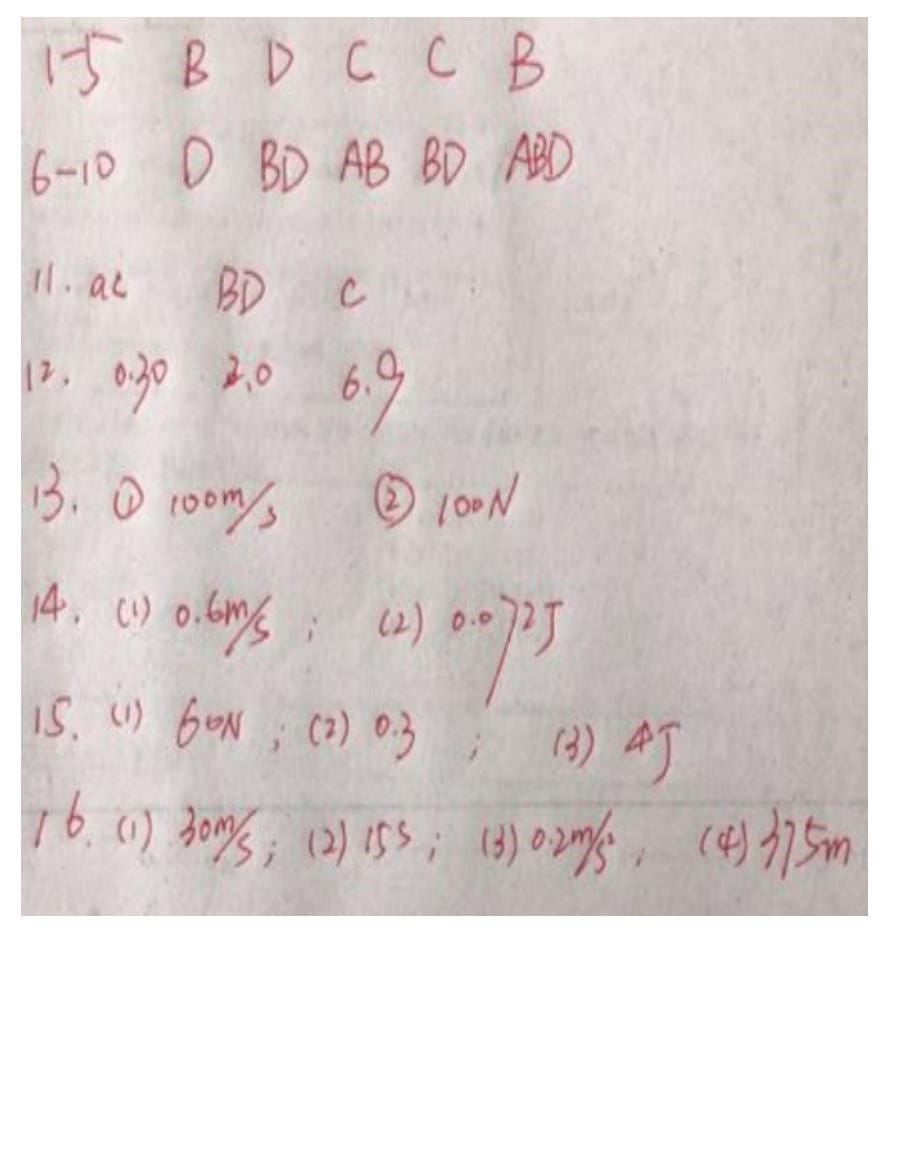 1-5 B D C C B
6-10 D BD AB BD ABD
11. ac BD C
12. 0.30 2.0 6.9
13. ① 100m/s ② 100N
14. (1) 0.6m/s ; (2) 0.072J
15. (1) 60N ; (2) 0.3 ; (3) 4J
16. (1) 30m/s ; (2) 15s ; (3) 0.2m/s² ; (4) 375m